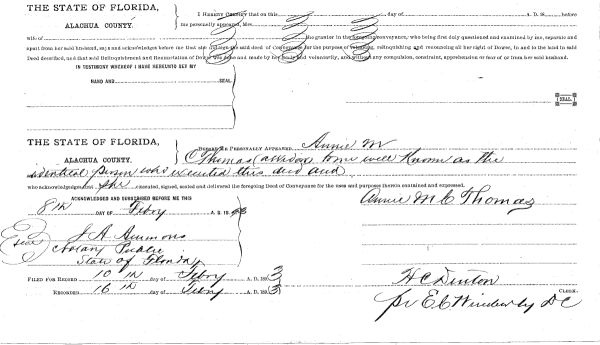 THE STATE OF FLORIDA,
ALACHUA COUNTY.
I HEREBY CERTIFY that on this day of A. D. 18 before
me personally appeared, Mrs.
wife of the grantor in the foregoing conveyance, who being first duly questioned and examined by me, separate and
apart from her said husband, says and acknowledges before me that she did sign the said deed of Conveyance for the purpose of relinquishing and renouncing all her right of Dower, in and to the land in said
Deed described, and that said Relinquishment and Renunciation of Dower was done and made by her freely and voluntarily, and without any compulsion, constraint, apprehension or fear of or from her said husband.
IN TESTIMONY WHEREOF I HAVE HEREUNTO SET MY
HAND AND SEAL.
SEAL.
THE STATE OF FLORIDA,
ALACHUA COUNTY.
BEFORE ME PERSONALLY APPEARED, Annie M
C Thomas (a widow) to me well Known as the
identical person who executed this deed and
who acknowledges that she executed, signed, sealed and delivered the foregoing Deed of Conveyance for the uses and purposes therein contained and expressed.
ACKNOWLEDGED AND SUBSCRIBED BEFORE ME THIS
8th DAY OF Feby A. D. 1893
Annie M C Thomas
Seal
J A Ammons
Notary Public
State of Florida
FILED FOR RECORD 10 th day of Feby A. D. 1893
RECORDED 16 th day of Feby A. D. 1893
H C Denton
CLERK.
pr E C Winderly DC